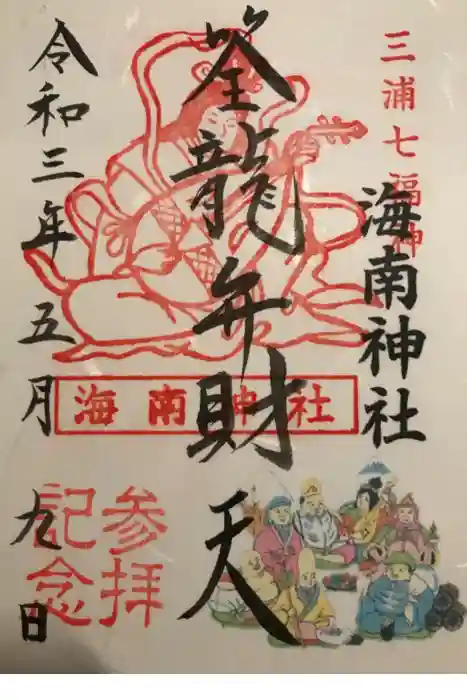 三浦七福神
海南神社
筌龍弁財天
海南神社
参拝
記念
令和三年五月九日